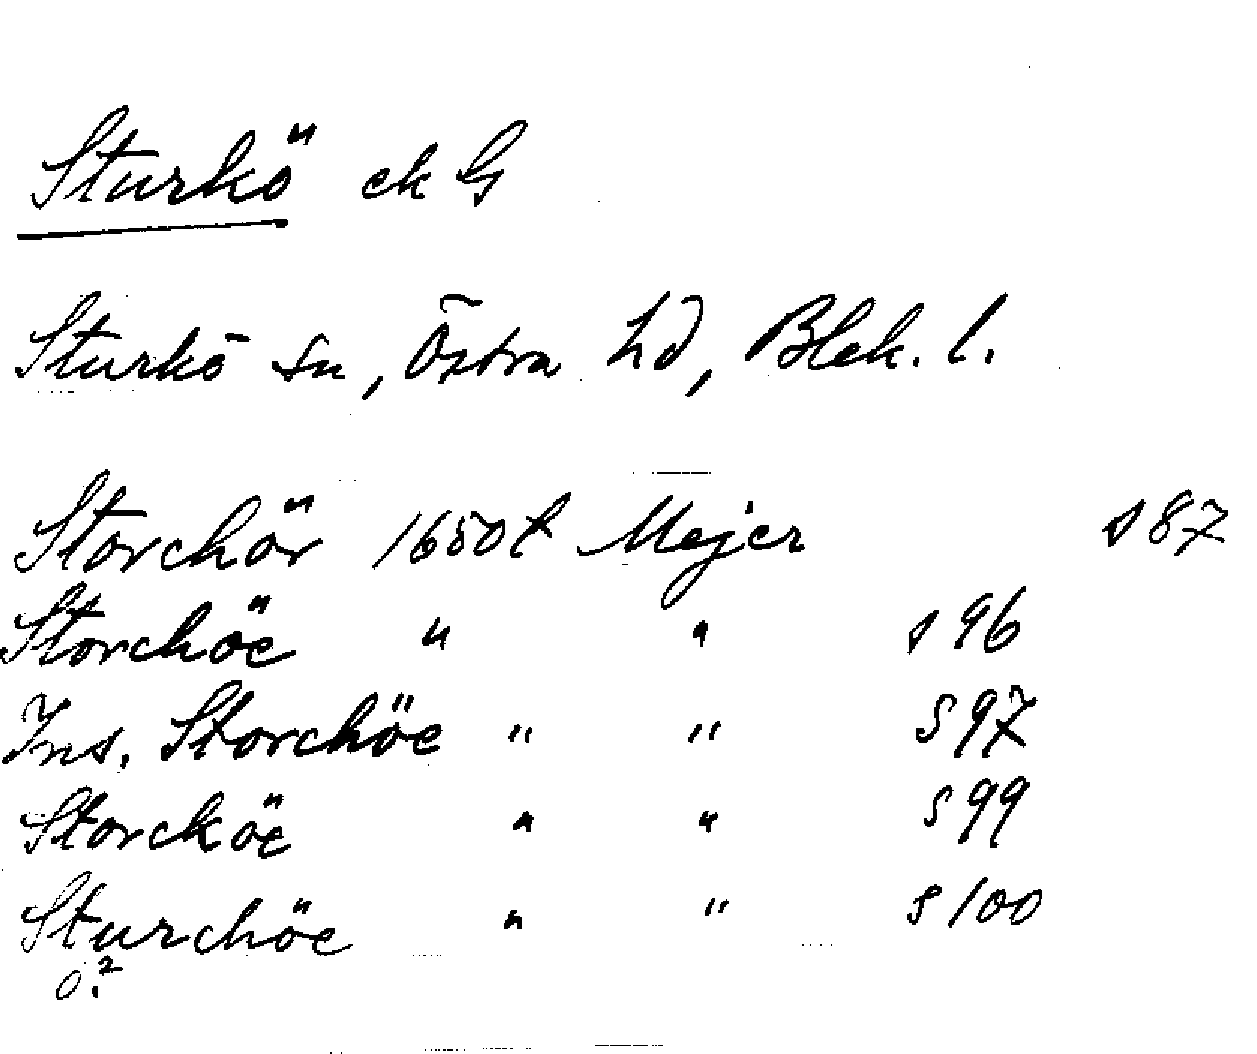 Sturkö ek G
Sturkö sn, Östra hd, Blek. l.
Storchör 1650t Mejer s 87
Storchöe " " s 96
Ins. Storchöe " " s 97
Storcköe " " s 99
Sturchöe " " s 100
o?